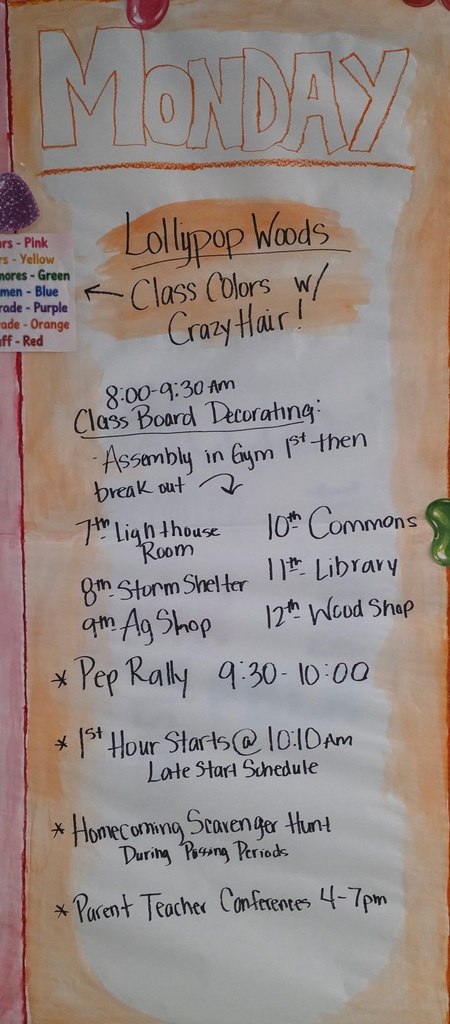 MONDAY
Lollypop Woods
ors - Pink
rs - Yellow
mores - Green
men - Blue
rade - Purple
ade - Orange
ff - Red
← Class Colors w/
Crazy Hair!
8:00-9:30 AM
Class Board Decorating:
- Assembly in Gym 1st then
break out
7th Lighthouse Room
10th Commons
8th - Storm Shelter
11th - Library
9th - Ag Shop
12th - Wood Shop
* Pep Rally 9:30 - 10:00
* 1st Hour Starts @ 10:10 AM
Late Start Schedule
* Homecoming Scavenger Hunt
During Passing Periods
* Parent Teacher Conferences 4-7pm